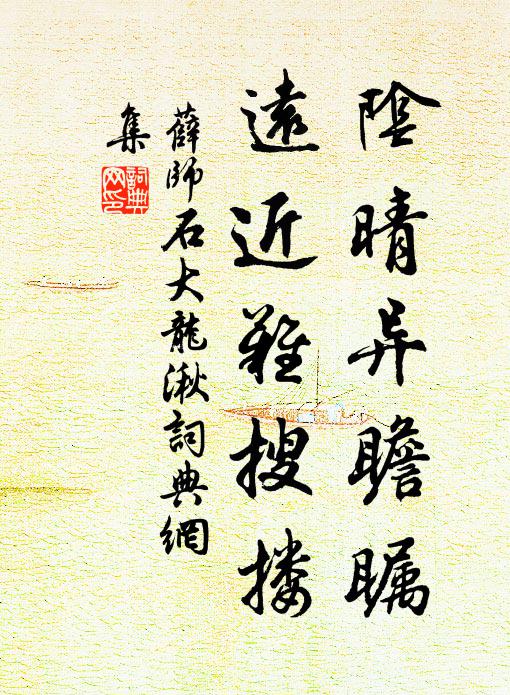 陰晴异瞻瞩
遠近難搜搂
薛師石大龍湫詞典網
集
詞典
网印